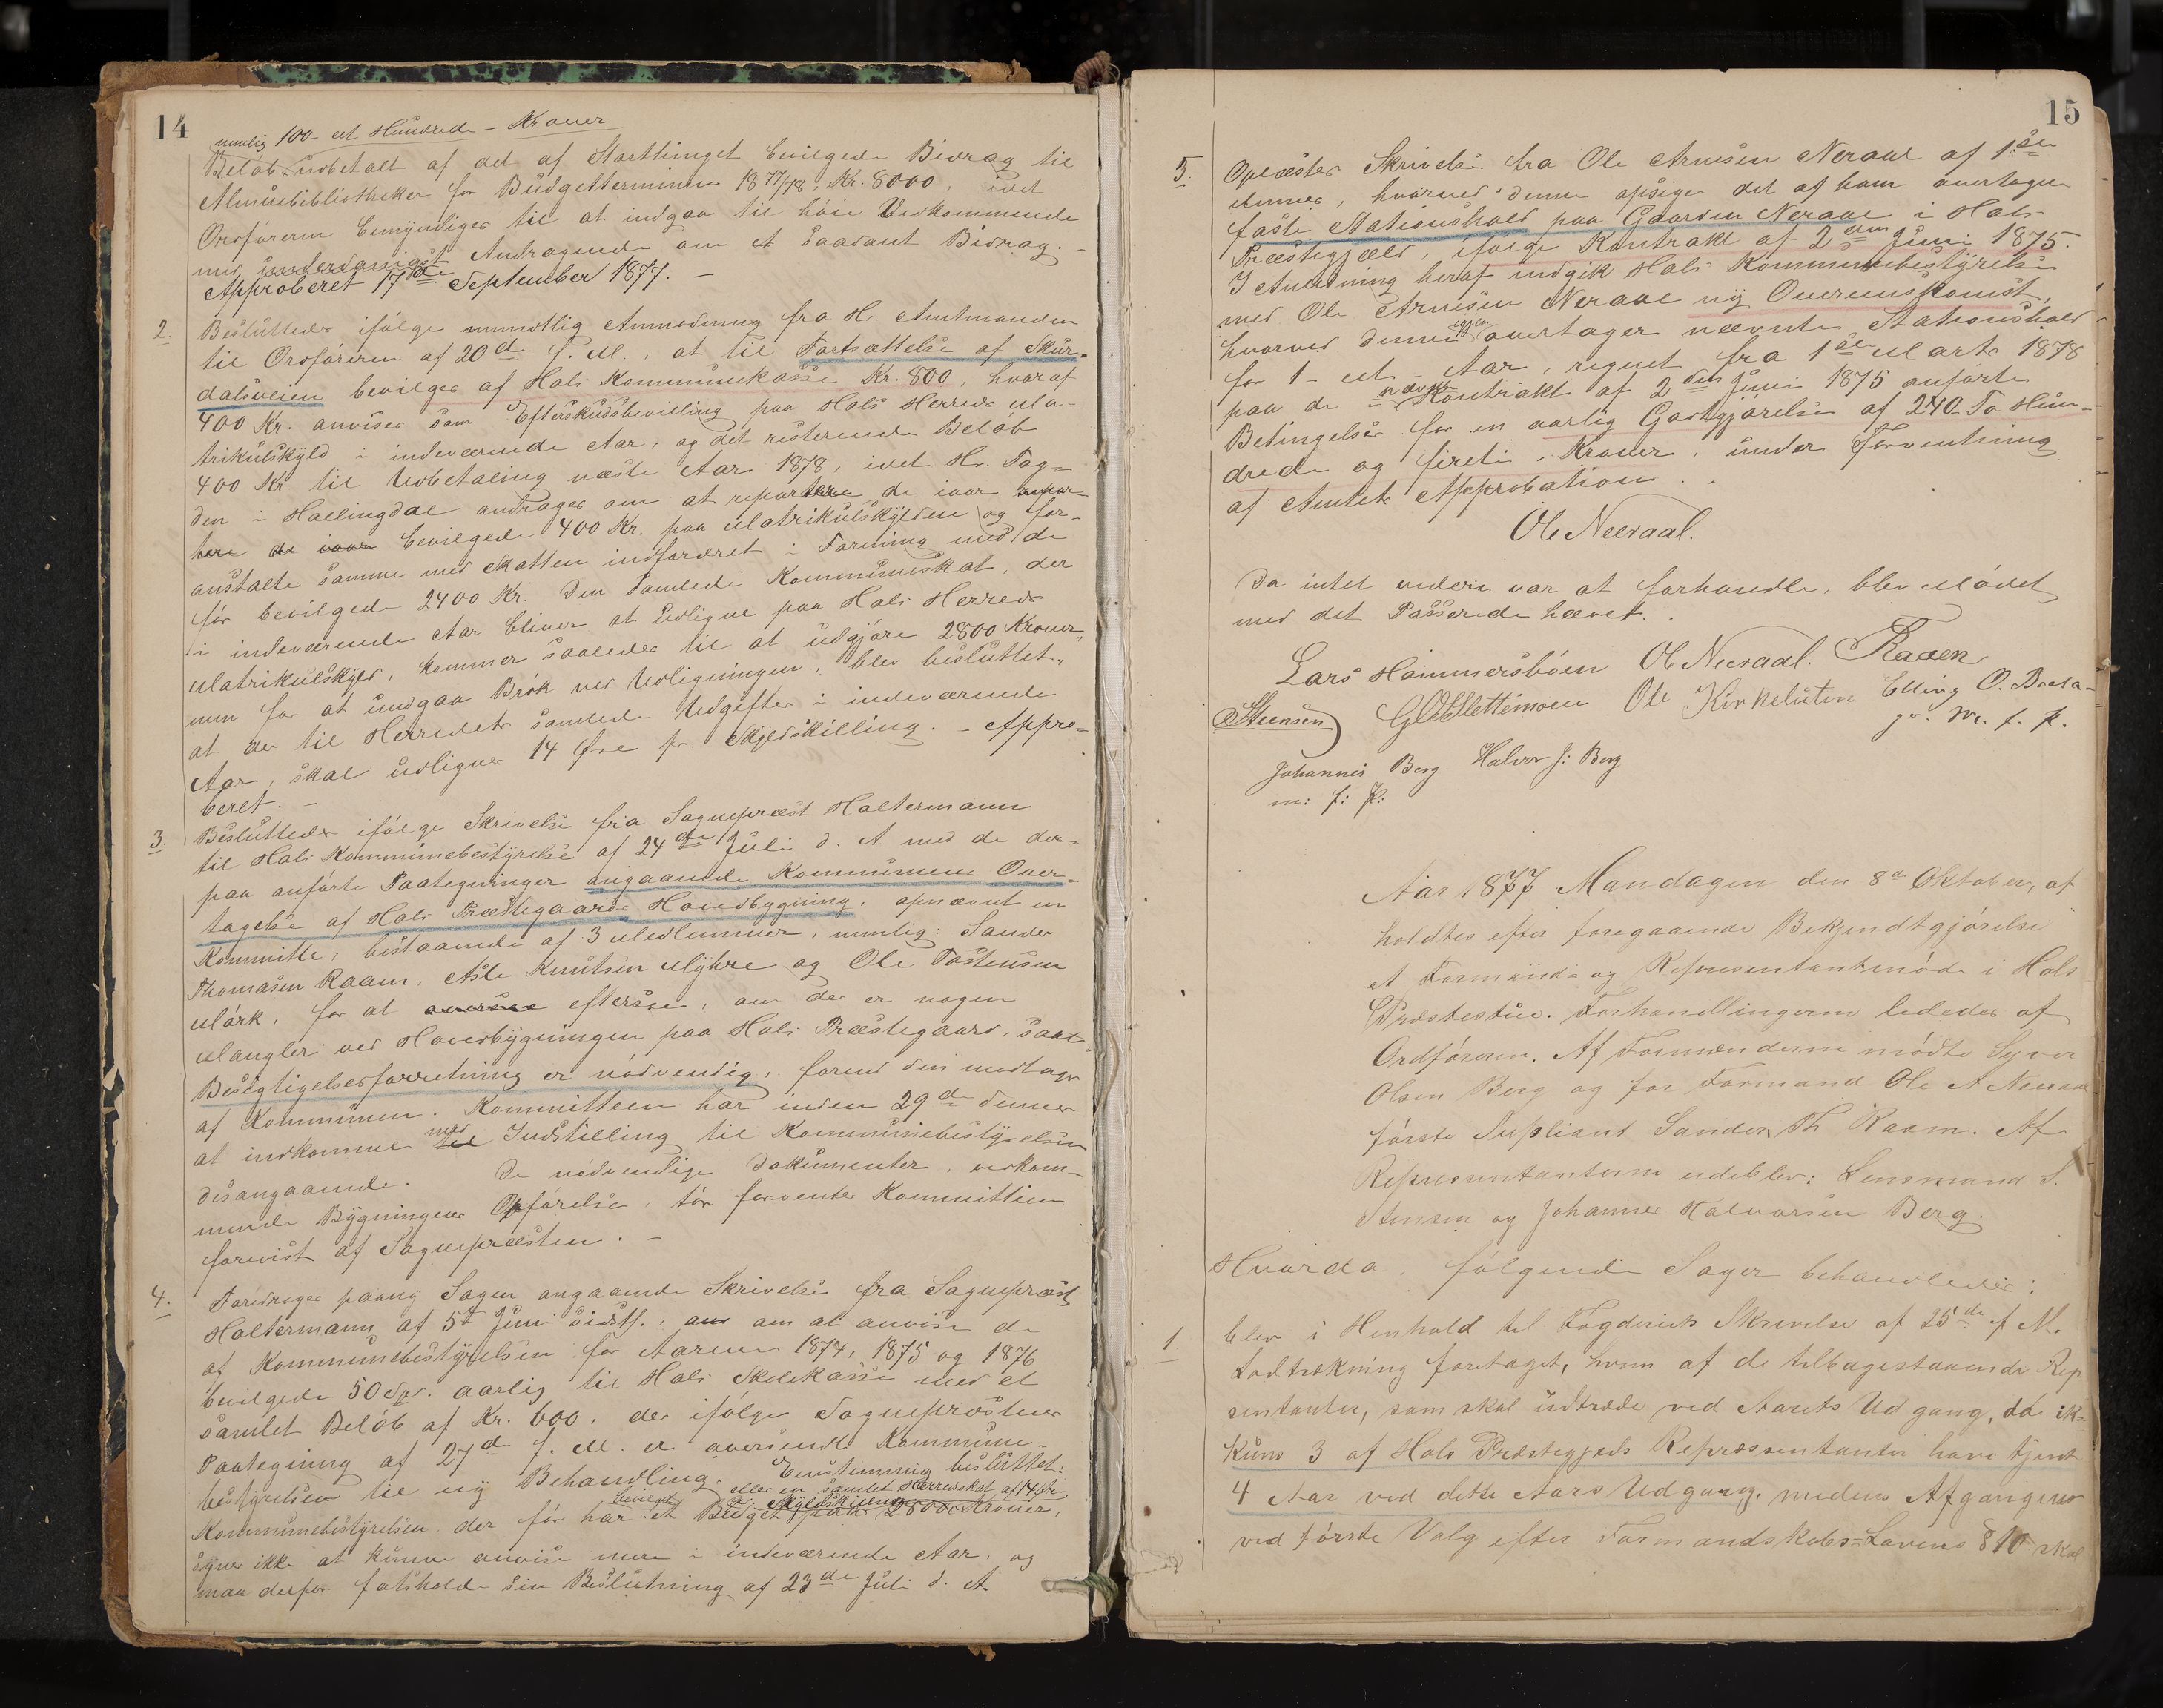 14
nemlig 100 - et Hundrede - Kroner
Beløb udbetalt af det af Storthinget bevilgede Bidrag til
Almuebibliotheker for Budgetterminen 1877/78, Kr. 8000, idet
Ordføreren bemyndiges til at indgaa til høie Vedkommende
med underdanigst Andragende om et saadant Bidrag. -
Approberet 17de September 1877. -
2. Besluttedes ifølge mundtlig Anmodning fra Hr. Amtmanden
til Ordføreren af 20de f. M., at til Fortsættelse af Skur-
dalsveien bevilges af Hols Kommunekasse Kr. 800, hvoraf
400 Kr. anvises som Efterskudsbevilling paa Hols Herreds Ma-
trikulskyld i indeværende Aar, og det resterende Beløb
400 Kr til Udbetaling næste Aar 1878, idet Hr. Fog-
den i Hallingdal andrages om at repartere de iaar
bevilgede 400 Kr. paa Matrikulskylden og for-
anstalte samme med Skatten indfordret i Forening med de
før bevilgede 2400 Kr. Den samlede Kommuneskat, der
i indeværende Aar bliver at udligne paa Hols Herreds
Matrikulskyld, kommer saaledes til at udgjøre 2800 Kroner,
men for at undgaa Brøk ved Udligningen, blev besluttet,
at der til Herredets samlede Udgifter i indeværende
Aar, skal udlignes 14 Øre pr. Skyldskilling. - Appro-
beret. -
3. Besluttedes ifølge Skrivelse fra Sognepræst Holtermann
til Hols Kommunebestyrelse af 24de Juli d. A. med de der-
paa anførte Paategninger angaaende Kommunens Over-
tagelse af Hols Præstegaards Hovedbygning, opnævnt en
Kommitte, bestaaende af 3 Medlemmer, nemlig: Sander
Thomasen Raaen, Asle Knutsen Myhre og Ole Tostensen
Mørk, for at eftersee, om der er nogen
Mangler ved Hovedbygningen paa Hols Præstegaard, samt
Besigtigelsesforretning er nødvendig, forend den modtages
af Kommunen. Kommitteen har inden 29de dennes
at indkomme med Indstilling til Kommunebestyrelsen
desangaaende. De nødvendige Dokumenter, vedkom-
mende Bygningens Opførelse, tør forventes Kommitteen
forevist af Sognepræsten. -
4. Foredroges paany Sagen angaaende Skrivelse fra Sognepræst
Holtermann af 5te Juni sidstl., om at anvise de
af Kommunebestyrelsen for Aarene 1874, 1875 og 1876
bevilgede 50 Spd. aarlig til Hols Skolekasse med et
samlet Beløb af Kr. 600, der ifølge Sognepræstens
Paategning af 27de f. M. er oversendt Kommune-
bestyrelsen til ny Behandling. Enstemmig besluttet:
bevilget eller en samlet Herredsskat af 14 Øre pr. Skyldskilling
Kommunebestyrelsen der før har et Budget paa 2800 Kroner,
synes ikke at kunne anvise mere i indeværende Aar, og
maa derfor fastholde sin Beslutning af 23de Juli d. A.
15
5. Oplæstes Skrivelse fra Ole Arnesen Neraal af 1ste
dennes, hvorved denne opsiger det af ham overtagne
faste Stationshold paa Gaarden Neraal i Hols
Præstegjæld, ifølge Kontrakt af 2den Juni 1875.
I Anledning heraf indgik Hols Kommunebestyrelse
med Ole Arnesen Neraal ny Overenskomst,
hvorved denne igjen overtager nævnte Stationshold
for 1 - et - Aar, regnet fra 1ste Marts 1878
paa de i nævnte Kontrakt af 2den Juni 1875 anførte
Betingelser for en aarlig Godtgjørelse af 240 To Hun-
drede og fireti, Kroner, under Forventning
af Amtets Approbation.
Ole Neeraal.
Da intet videre var at forhandle, blev Mødet
med det Passerede hævet.
Lars Hammersbøen Ole Neeraal. Raaen
Steensen G O Slettemoen Ole Kirkeluten Elling O. Breta-
m. f. p.
Johannes Berg Halvor S: Berg
m: f: P:
Aar 1877 Mandagen den 8de Oktober, af
holdtes efter foregaaende Bekjendtgjørelse
et Formænd- og Representantmøde i Hols
Prestestue. Forhandlingerne lededes af
Ordføreren. Af Formænderne mødte Syver
Olsen Berg og for Formand Ole A Neeraal
første Supliant Sander Th Raaen. Af
Representanterne udeblev: Lensmand S.
Steensen og Johannes Halvorsen Berg.
Hvorda følgende Sager behandledes:
1. blev i Henhold til Fogderiets Skrivelse af 25de f M.
Lodtrækning foretaget, hvem af de tilbagestaaende Rep
sentanter, som skal udtræde ved Aarets Udgang, da ik-
kuns 3 af Hols Præstegjelds Repræsentanter have tjent
4 Aar ved dette Aars Udgang, medens Afgangene
ved første Valg efter Formandskabs-Lovens § 10 skal